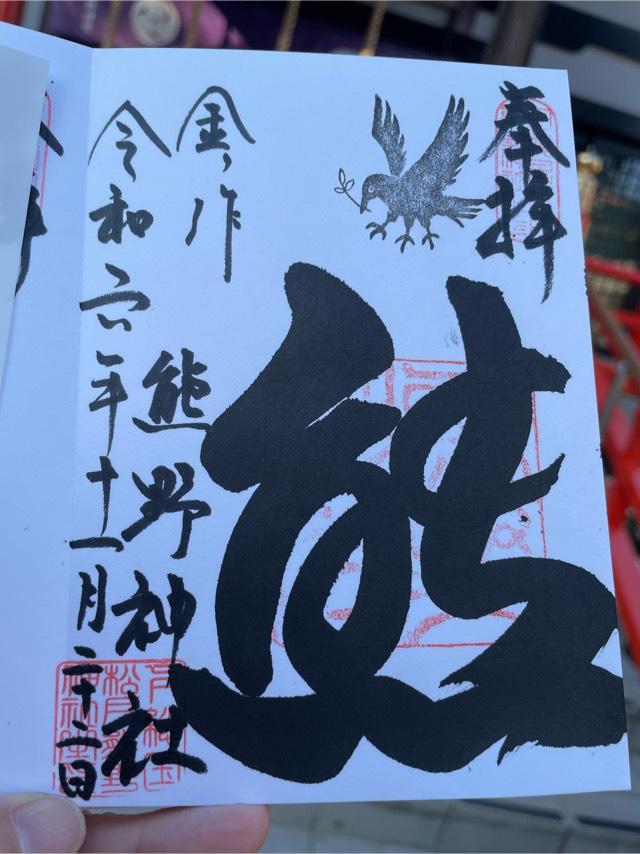 奉拝
熊
金作
熊野神社
令和六年十一月二十二日